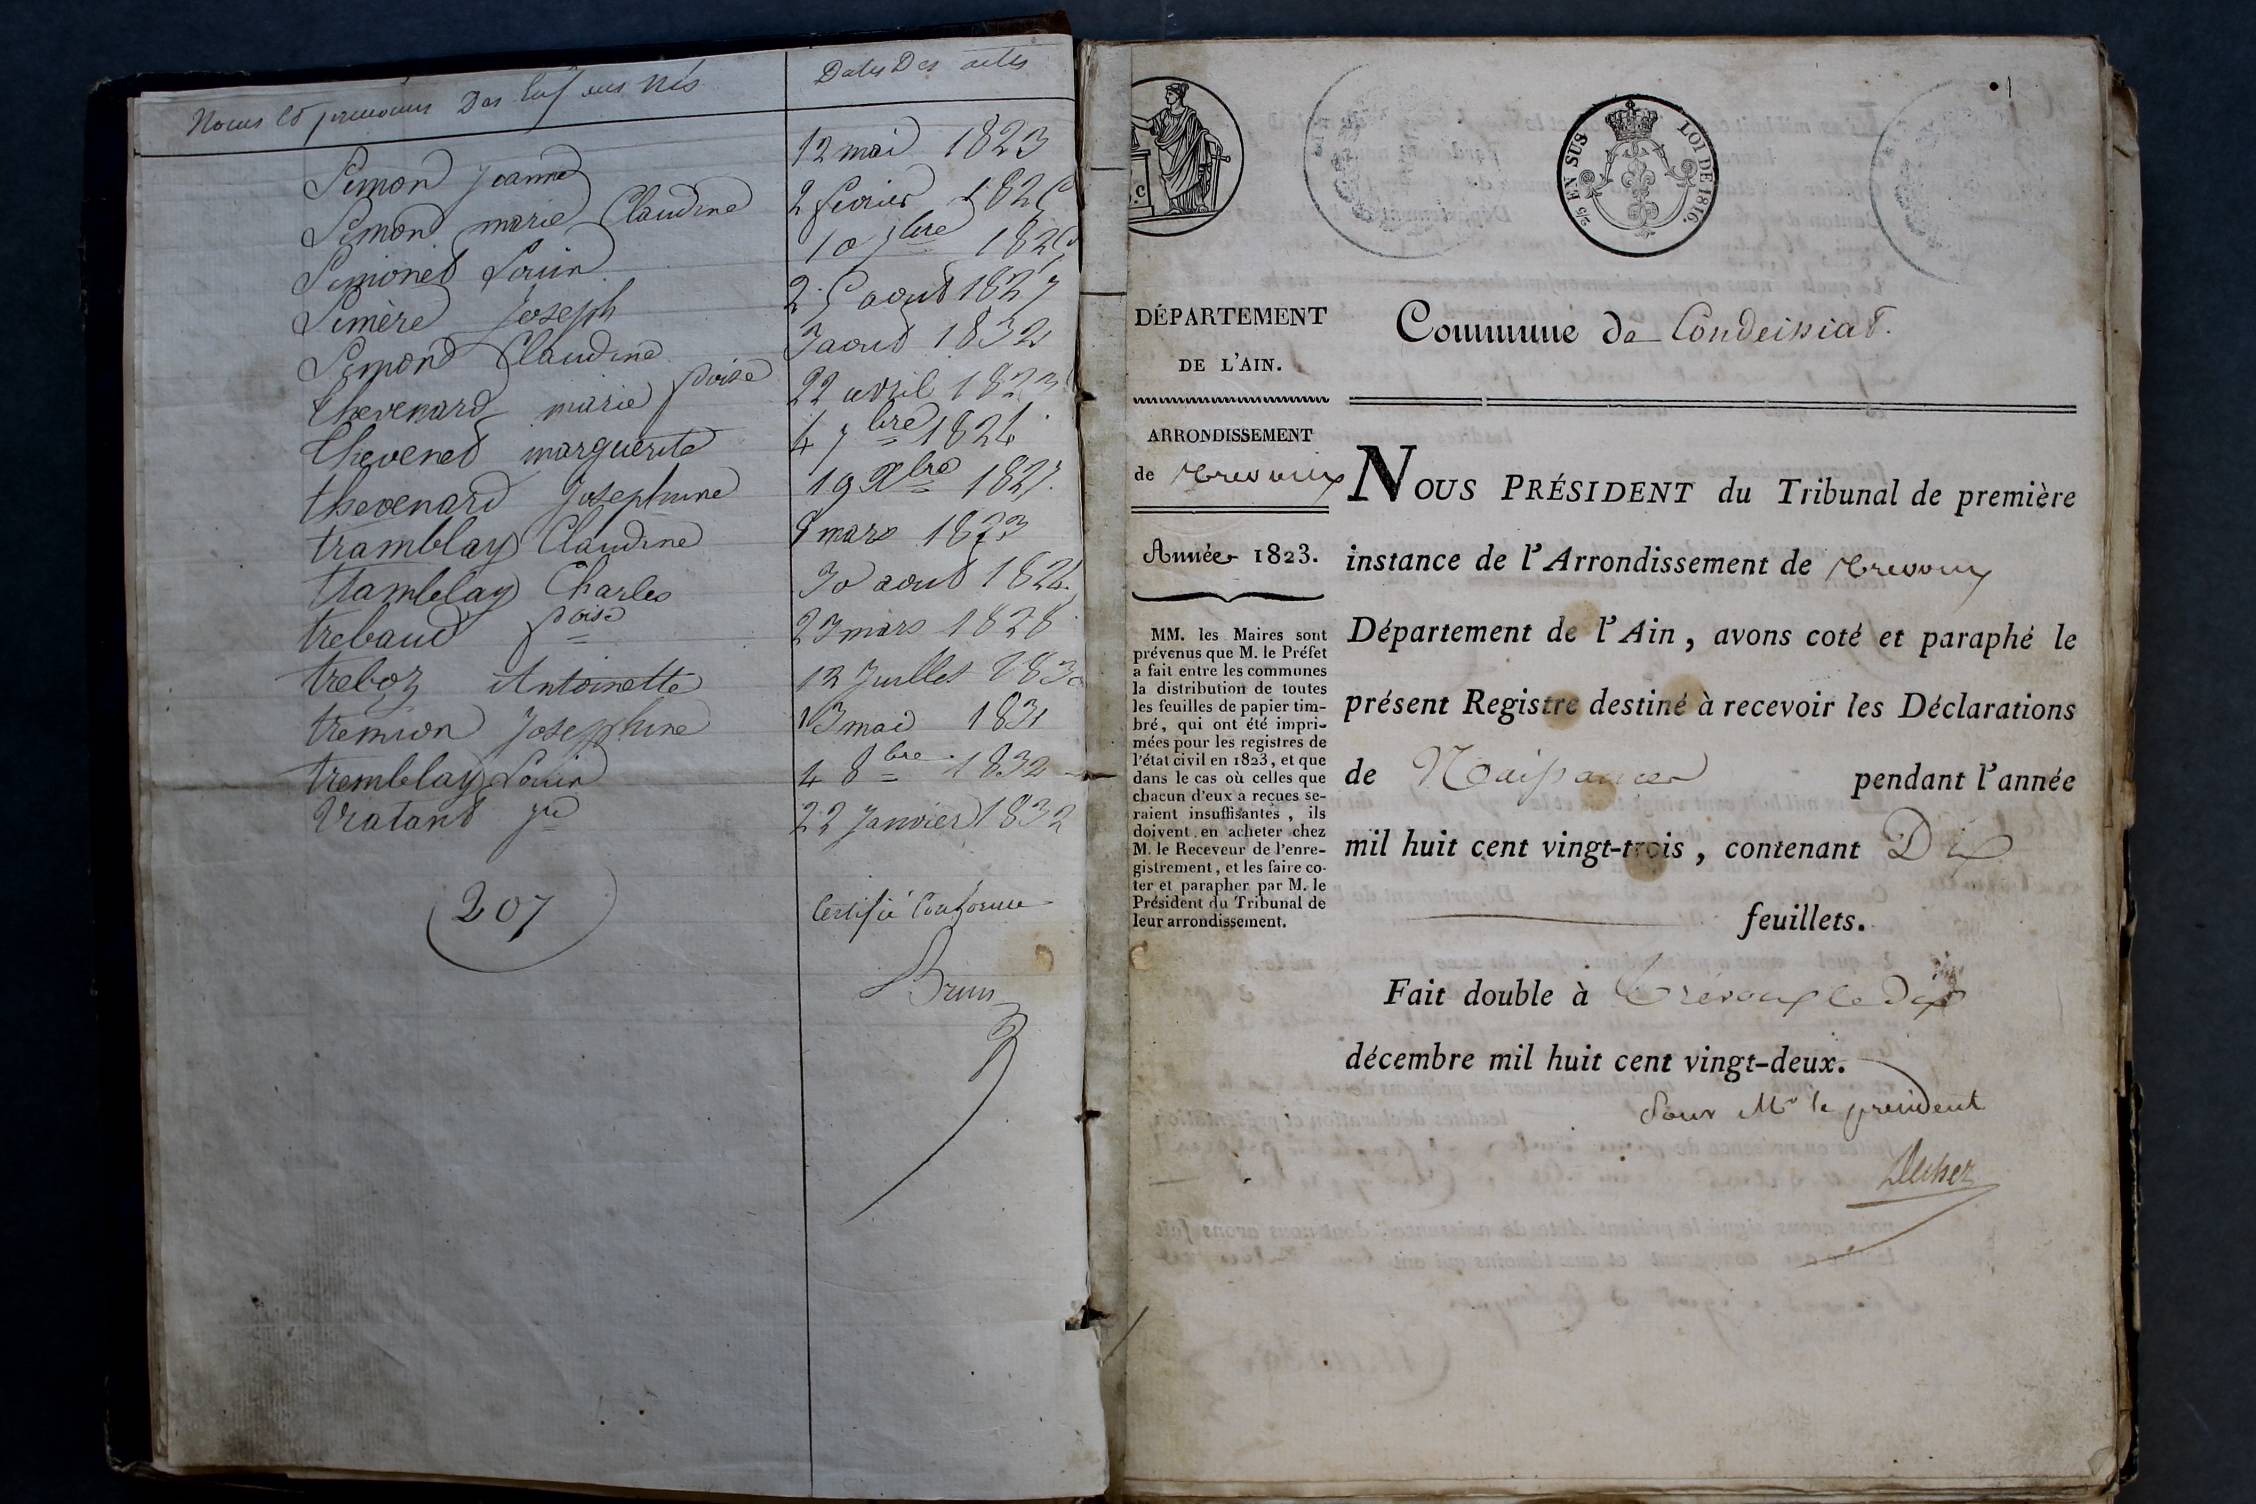 Noms et prenoms Des Enfans Nés
Dates Des actes
Simon Jeanne 12 mai 1823
Simond marie Claudine 2 fevrier 182
Simonet Louis 10 7bre 182
Simère Joseph 25 aout 1827
Simond Claudine 3 aout 1832
thevenard marie foise 22 avril 1823
thevenet marguerite 4 7bre 1824
thevenard Josephine 19 Xbre 1827
tramblay Claudine 8 mars 1823
tramblay Charles 30 aout 1824
trebaud foise 23 mars 1828
treboz Antoinette 12 Juillet 1830
tremion Josephine 13 mai 1831
tremblay Louis 4 8bre 1832
Vratant 22 Janvier 1832
207
Certifié Conforme
Brun
1
2/5 EN SUS
LOI DE 1816.
DÉPARTEMENT
DE L'AIN.
ARRONDISSEMENT
de Trevoux
Année 1823.
MM. les Maires sont
prévenus que M. le Préfet
a fait entre les communes
la distribution de toutes
les feuilles de papier tim-
bré, qui ont été impri-
mées pour les registres de
l'état civil en 1823, et que
dans le cas où celles que
chacun d'eux a reçues se-
raient insuffisantes, ils
doivent en acheter chez
M. le Receveur de l'enre-
gistrement, et les faire co-
ter et parapher par M. le
Président du Tribunal de
leur arrondissement.
Commune de Condeissiat.
NOUS PRÉSIDENT du Tribunal de première
instance de l'Arrondissement de Trevoux
Département de l'Ain, avons coté et paraphé le
présent Registre destiné à recevoir les Déclarations
de Naissances pendant l'année
mil huit cent vingt-trois, contenant Dix
feuillets.
Fait double à Trévoux le dix
décembre mil huit cent vingt-deux.
Pour Mr le president